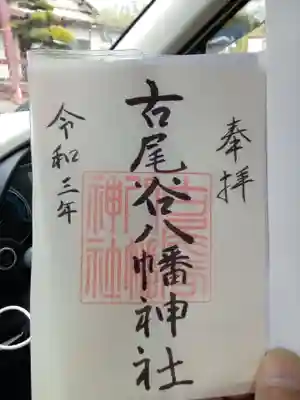 奉拝
古尾谷八幡神社
令和三年